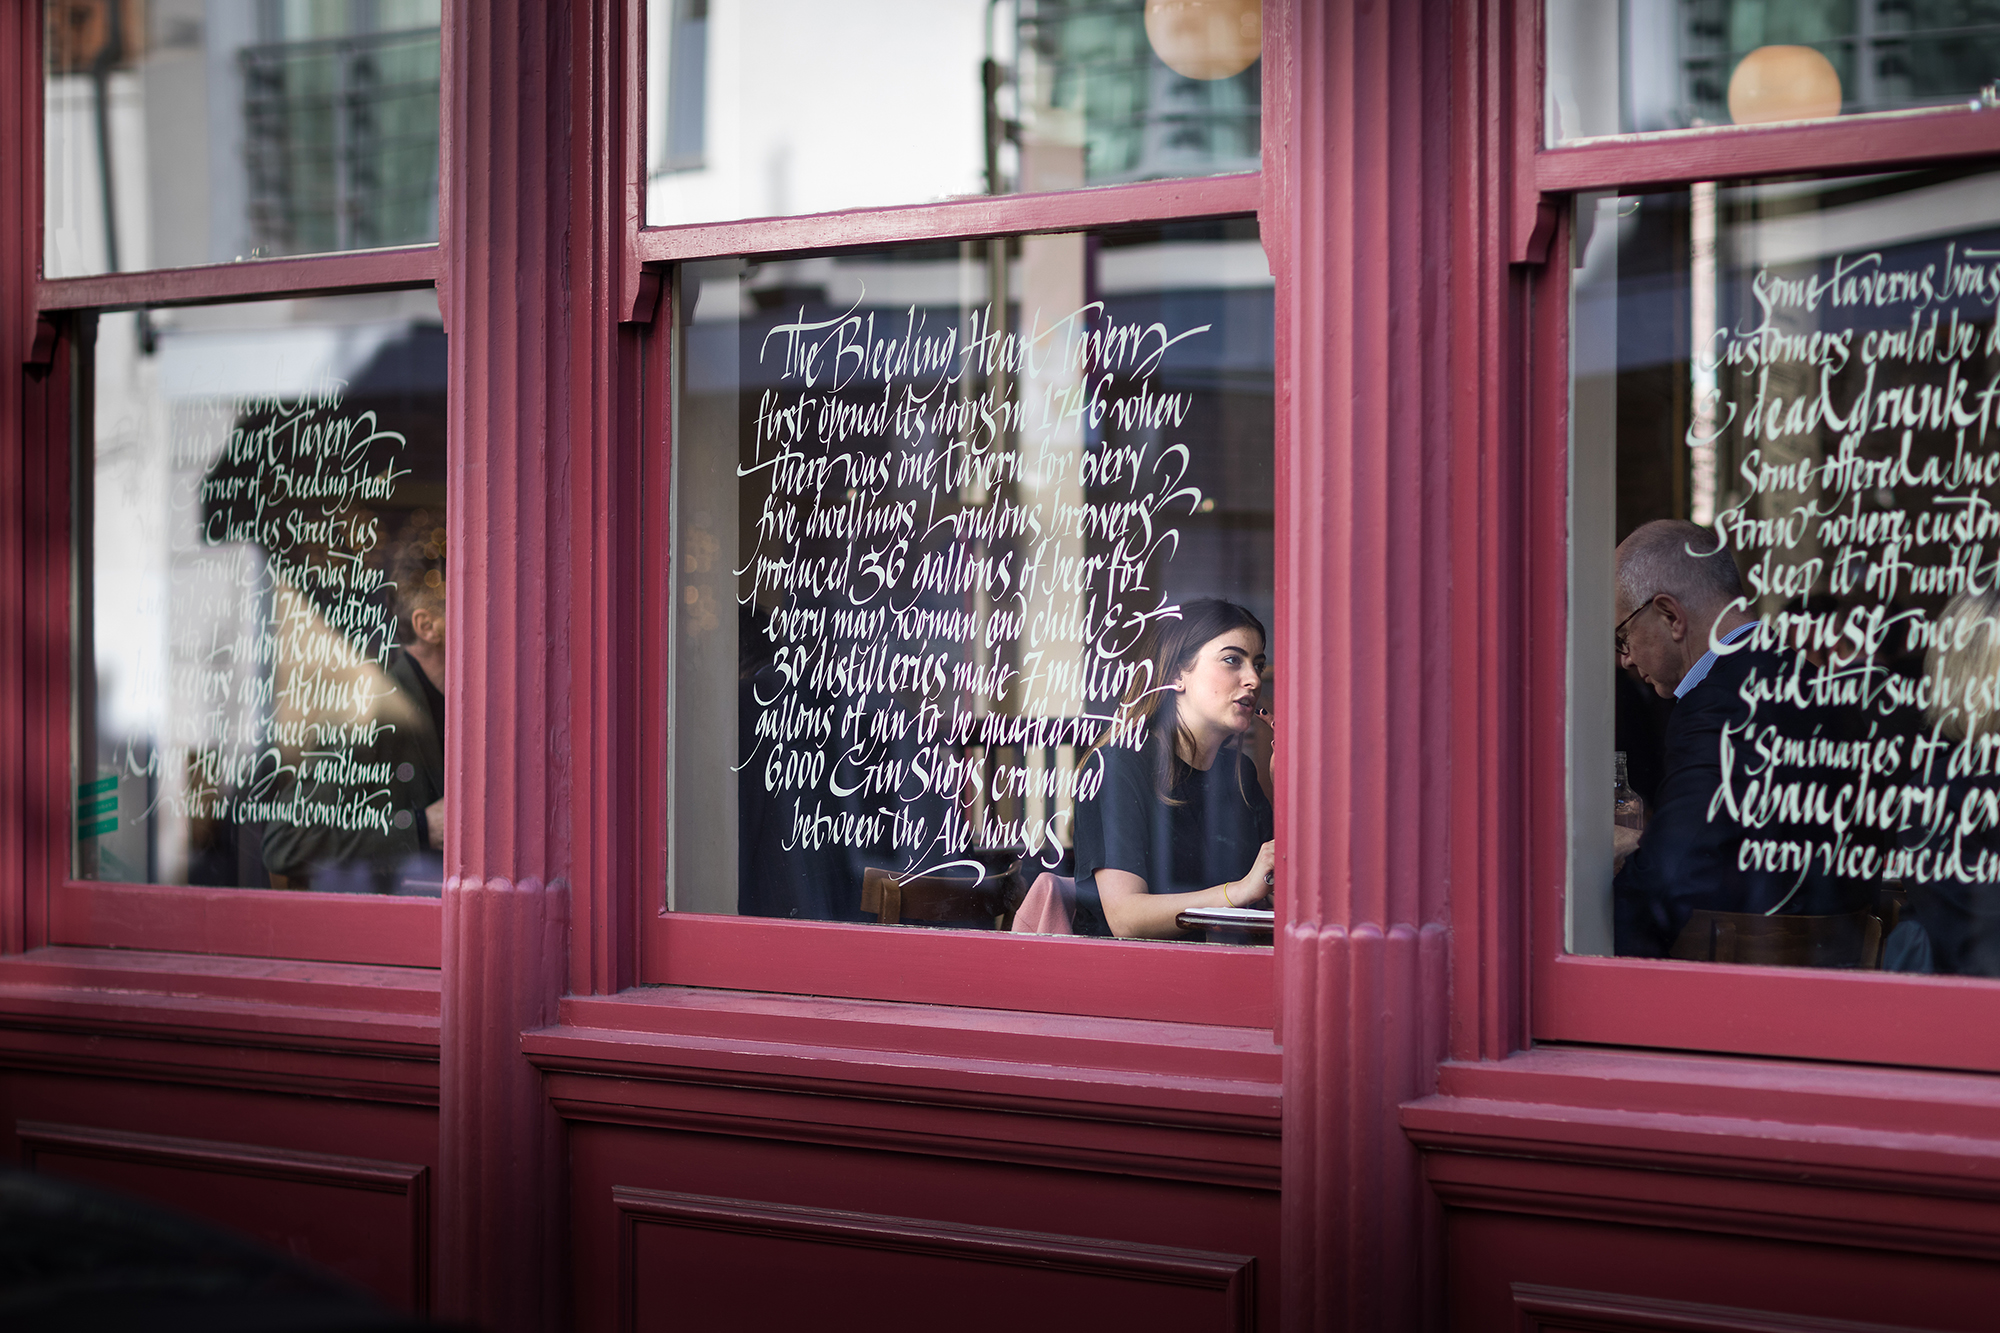 record of the
Heart Tavern
Corner of Bleeding Heart
& Charles Street, (as
Greville Street was then
known) is in the 1746 edition
the London Register of
keepers and Alehouse
The licencee was one
Hebden, a gentleman
with no (criminal) convictions.
The Bleeding Heart Tavern
first opened its doors in 1746 when
there was one tavern for every
five dwellings. Londons brewers
produced 36 gallons of beer for
every man, woman and child &
30 distilleries made 7 million
gallons of gin to be quaffed in the
6,000 Gin Shops crammed
between the Ale houses
Some taverns boas
Customers could be d
& dead drunk f
Some offered a bac
Straw" where custom
sleep it off until t
Carouse once
said that such est
"Seminaries of dr
debauchery, ex
every vice inciden